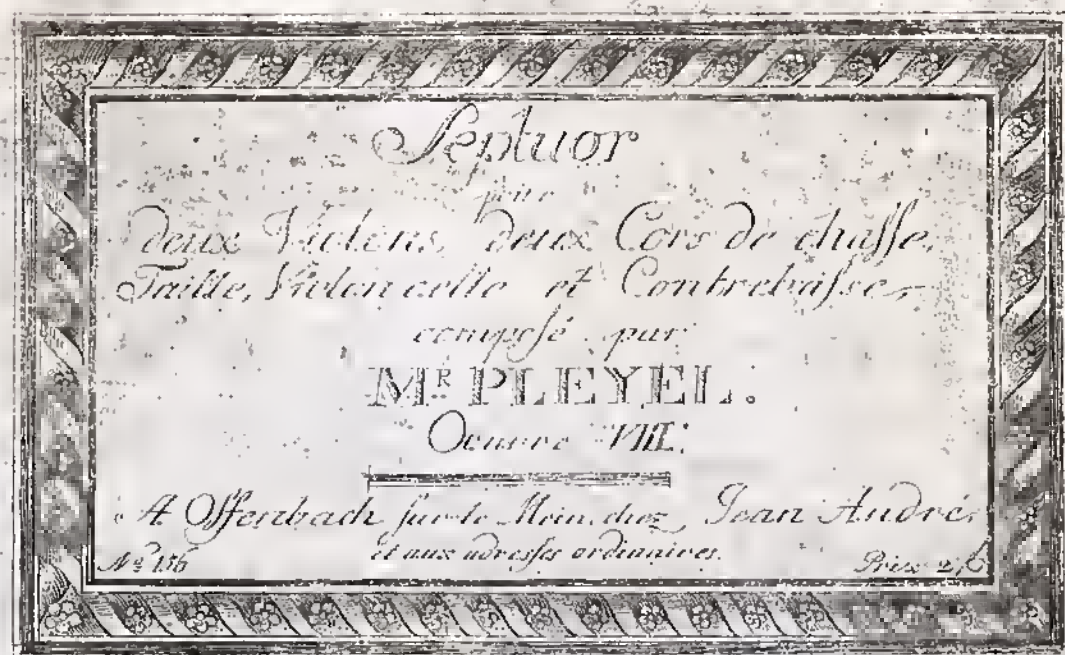 Septuor
pour
deux Violons, deux Cors de chasse,
Taille, Violoncello et Contrebasse
composé par
MR. PLEYEL.
Oeuvre VIII.
A Offenbach sur le Mein, chez Jean André,
et aux adresses ordinaires.
No. 156 Prix 2 f